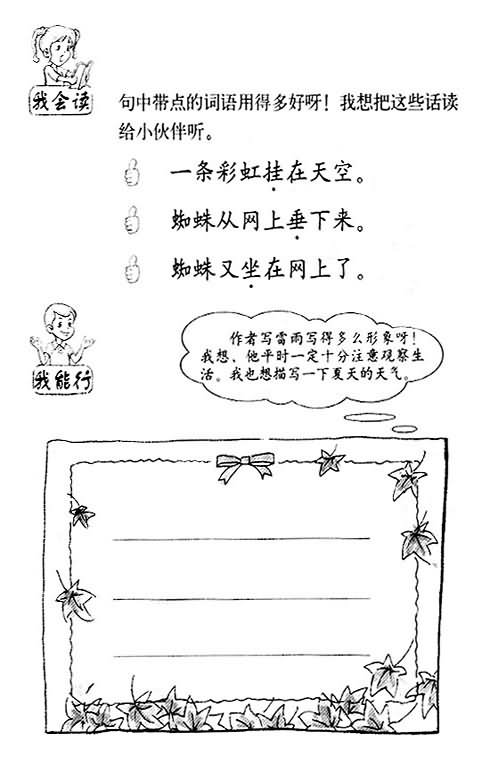 我会读
句中带点的词语用得多好呀！我想把这些话读
给小伙伴听。
一条彩虹挂在天空。
蜘蛛从网上垂下来。
蜘蛛又坐在网上了。
我能行
作者写雷雨写得多么形象呀！
我想，他平时一定十分注意观察生
活。我也想描写一下夏天的天气。